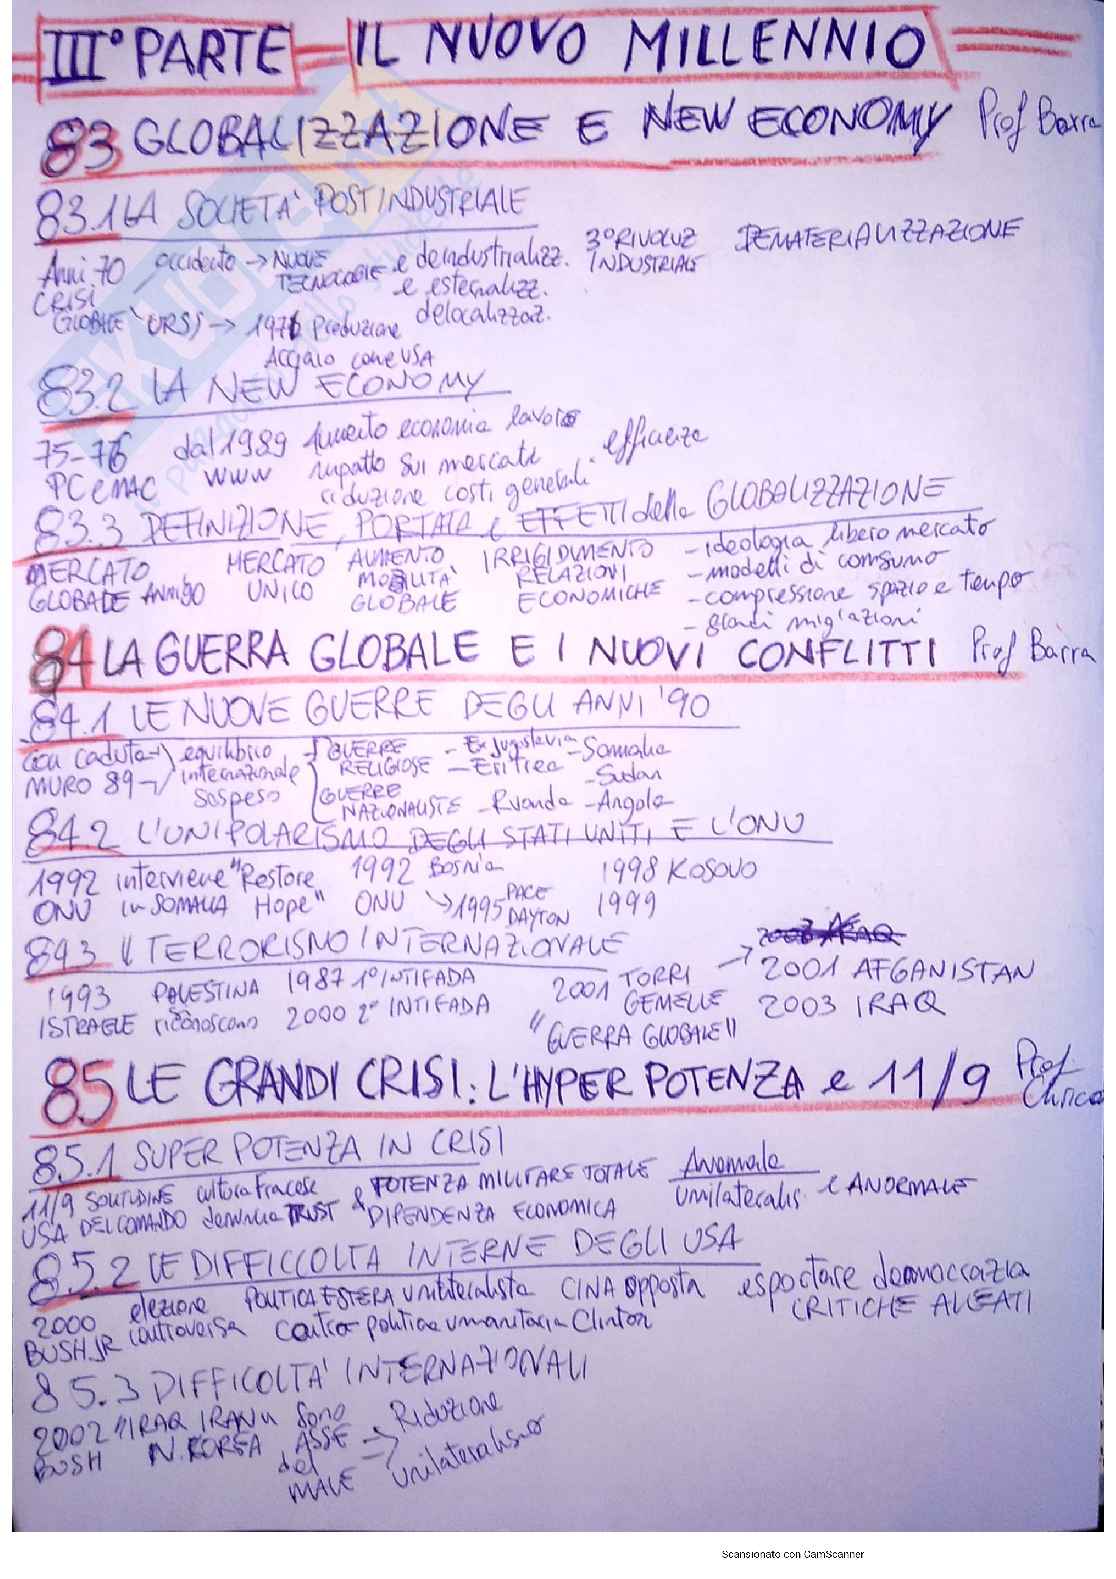 III° PARTE IL NUOVO MILLENNIO
83 GLOBALIZZAZIONE E NEW ECONOMY Prof Barra
83.1 LA SOCIETA' POSTINDUSTRIALE
Anni 70 occidente → NUOVE TECNOLOGIE e deindustrializz. 3° RIVOLUZ INDUSTRIALE DEMATERIALIZZAZIONE
CRISI e esternalizz.
GLOBALE URSS → 1976 Produzione delocalizzaz.
Acciaio come USA
83.2 LA NEW ECONOMY
75-76 dal 1989 Aumento economia lavoro efficienza
PC e MAC WWW impatto sui mercati
riduzione costi generali
83.3 DEFINIZIONE, PORTATA e EFFETTI della GLOBALIZZAZIONE
MERCATO MERCATO AUMENTO IRRIGIDIMENTO - ideologia libero mercato
GLOBALE Anni 90 UNICO MOBILITA' RELAZIONI - modelli di consumo
GLOBALE ECONOMICHE - compressione spazio e tempo
- grandi migrazioni
84 LA GUERRA GLOBALE E I NUOVI CONFLITTI Prof Barra
84.1 LE NUOVE GUERRE DEGLI ANNI '90
con caduta → equilibrio GUERRE - Ex jugoslavia - Somalia
MURO 89 → internazionale RELIGIOSE - Eritrea - Sudan
sospeso GUERRE
NAZIONALISTE - Ruanda - Angola
84.2 L'UNIPOLARISMO DEGLI STATI UNITI E L'ONU
1992 interviene "Restore 1992 Bosnia 1998 KOSOVO
ONU in SOMALIA Hope" ONU → 1995 PACE DAYTON 1999
84.3 Il TERRORISMO INTERNAZIONALE
1993 PALESTINA 1987 1° INTIFADA 2001 TORRI → 2001 AFGANISTAN
ISRAELE riconoscono 2000 2° INTIFADA GEMELLE 2003 IRAQ
"GUERRA GLOBALE"
85 LE GRANDI CRISI: L'HYPER POTENZA e 11/9 Prof.
85.1 SUPER POTENZA IN CRISI
11/9 SOLITUDINE cultura francese POTENZA MILITARE TOTALE Anomala
USA DEL COMANDO denuncia TRUST & DIPENDENZA ECONOMICA Unilateralis. e ANORMALE
85.2 LE DIFFICOLTA INTERNE DEGLI USA
2000 elezione POLITICA ESTERA unilateralista CINA opposta esportare democrazia
BUSH JR controversa contro politica umanitaria Clinton CRITICHE ALLEATI
85.3 DIFFICOLTA' INTERNAZIONALI
2002 "IRAQ IRAN sono → Riduzione
BUSH N. KOREA ASSE unilateralismo
del
MALE
Scansionato con CamScanner